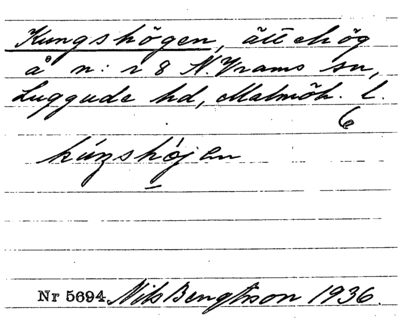 Kungshögen, ättehög
å n:r 8 N. Vrams sn,
Luggude hd, Malmöh. l.
6
kúngshöjen
Nr 5694 Nils Bengtsson 1936.